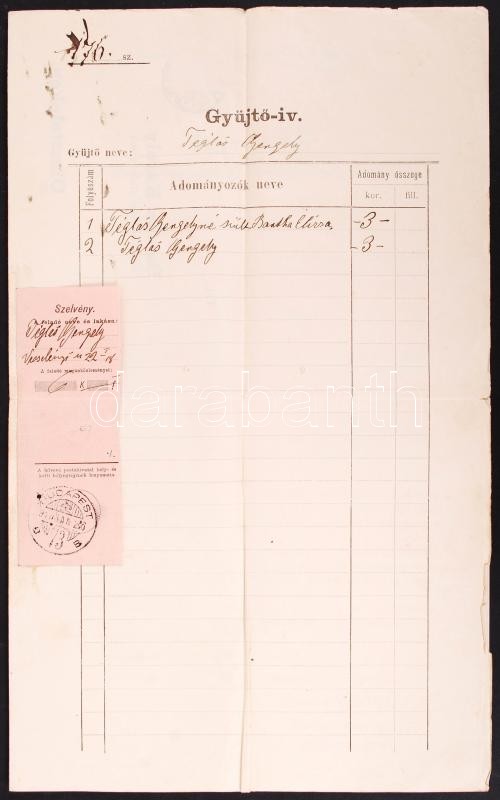 176. sz.
Gyüjtő-iv.
Gyüjtő neve: Téglás Gergely
Folyószám
Adományozók neve
Adomány összege
kor. fill.
1 Téglás Gergelyné szül. Bartha Clára -3-
2 Téglás Gergely -3-
Szelvény.
A feladó neve és lakása:
Téglás Gergely
Wesselényi u 22
A feladó megjegyzései:
6 K f
darabanth
A felvevő postahivatal hely- és
BUDAPEST